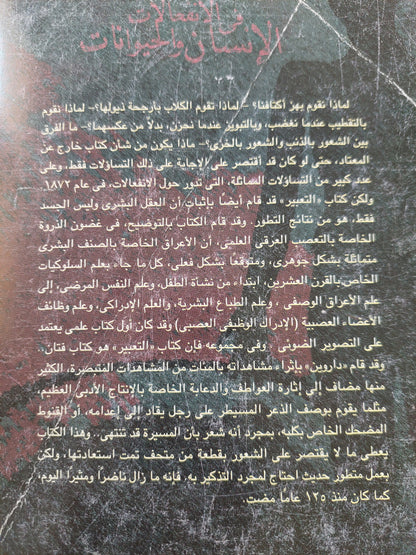 فى الانفعالات
الإنسان والحيوانات
لماذا نقوم بهز أكتافنا؟ – لماذا تقوم الكلاب بأرجحة ذيولها؟ – لماذا نقوم
بالتقطيب عندما نغضب، وبالتبويز عندما نحزن، بدلاً من عكسهما؟ – ما الفرق
بين الشعور بالذنب والشعور بالخزى؟ – ماذا يكون من شأن كتاب خارج عن
المعتاد، حتى لو كان قد أقتصر على الإجابة على ذلك التساؤلات فقط، وعلى
عدد كبير من التساؤلات المماثلة، التى تدور حول الانفعالات، فى عام ١٨٧٢
ولكن كتاب «التعبير» قد قام أيضاً بإثبات أن العقل البشرى وليس الجسد
فقط، هو من نتائج التطور. وقد قام الكتاب بالتوضيح، فى غضون الذروة
الخاصة بالتعصب العرقى العلمى، أن الأعراق الخاصة بالصنف البشرى
متماثلة بشكل جوهرى، ومتوقعاً بشكل فعلى، كل ما جاء بعلم السلوكيات
الخاص بالقرن العشرين، ابتداء من نشأة الطفل، وعلم النفس المرضى، إلى
علم الأعراق الوصفى، وعلم الطباع البشرية، والعلم الإدراكى، وعلم وظائف
الأعضاء العصبية (الإدراك الوظيفى العصبى) وقد كان أول كتاب علمى يعتمد
على التصوير الضوئى. وفى مجموعه فإن كتاب «التعبير» هو كتاب فتان،
وقد قام «داروين» بإثراء مشاهداته بالمئات من المشاهدات المتبصرة، الكثير
منها مضاف إلى إثارة العواطف والدعابة الخاصة بالإنتاج الأدبى العظيم،
مثلما يقوم بوصف الذعر المسيطر على رجل يقاد إلى إعدامه، أو القنوط
المضحك الخاص بكلبه، بمجرد أنه شعر بأن المسيرة قد تنتهى. وهذا الكتاب
يعطى ما لا يقتصر على الشعور بقطعة من متحف تمت استعادتها، ولكن
بعمل متطور حديث احتاج لمجرد التذكير به. فإنه ما زال ناضراً ومثيراً اليوم،
كما كان منذ ١٢٥ عاماً مضت.